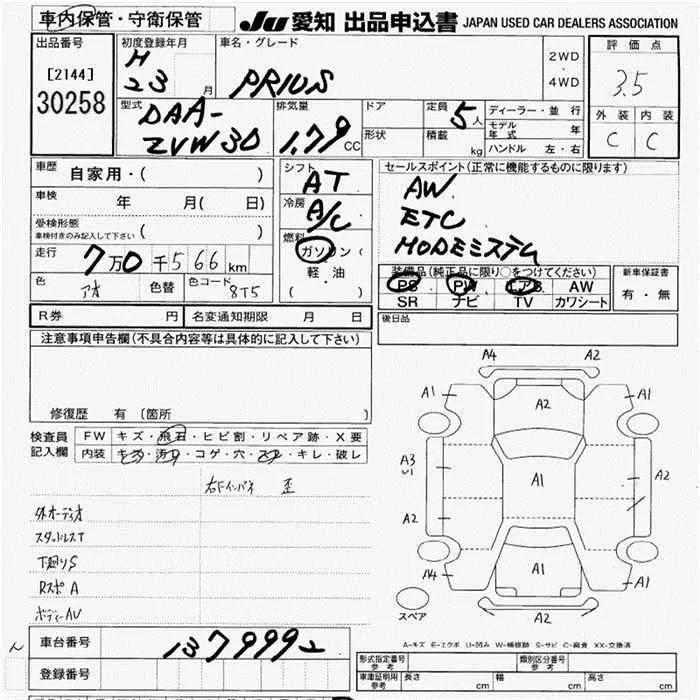 車内保管・守衛保管
JU 愛知 出品申込書 JAPAN USED CAR DEALERS ASSOCIATION
出品番号
[2144]
30258
初度登録年月
H
23 月
車名・グレード
PRIUS
2WD
・
4WD
評価点
3.5
外装 内装
C C
型式
DAA-
ZVW30
排気量
1.79 CC
ドア
形状
定員
5人
積載
kg
ディーラー・並行
モデル年式 年
ハンドル 左・右
車歴
自家用・( )
車検
年 月( 日)
受検形態
車検付きのみ記入して下さい ( )
走行
7万0千566km
色
アオ
色替
色コード
8T5
シフト
AT
冷房
A/C
燃料
ガソリン
軽油
( )
セールスポイント(正常に機能するものに限ります)
AW
ETC
MODEミステム
装備品(純正品に限り○をつけてください)
PS PW エアB AW
SR ナビ TV カワシート
新車保証書
有・無
R券 円
名変通知期限 月 日
後日品
注意事項申告欄(不具合内容等は具体的に記入して下さい)
修復歴 有 (箇所 )
検査員
記入欄
FW キズ・飛石・ヒビ割・リペア跡・X要
内装 キズ・汚レ・コゲ・穴・スレ・キレ・破レ
右Fインパネ 歪
外オーディオ
スタッドレスT
下廻りS
Rスポ A
ボディーAU
A4 A2
A1 A2 A1
A3
U1
A1 A2
A2
A4 A1 A1
スペア
A2
A-キズ E-エクボ U-凹み W-補修跡 S-サビ C-腐食 XX-交換済
車台番号
1379992
登録番号
形式指定番号
参考
類別区分番号
参考
車庫証明用
参考
長さ cm 幅 cm 高さ cm